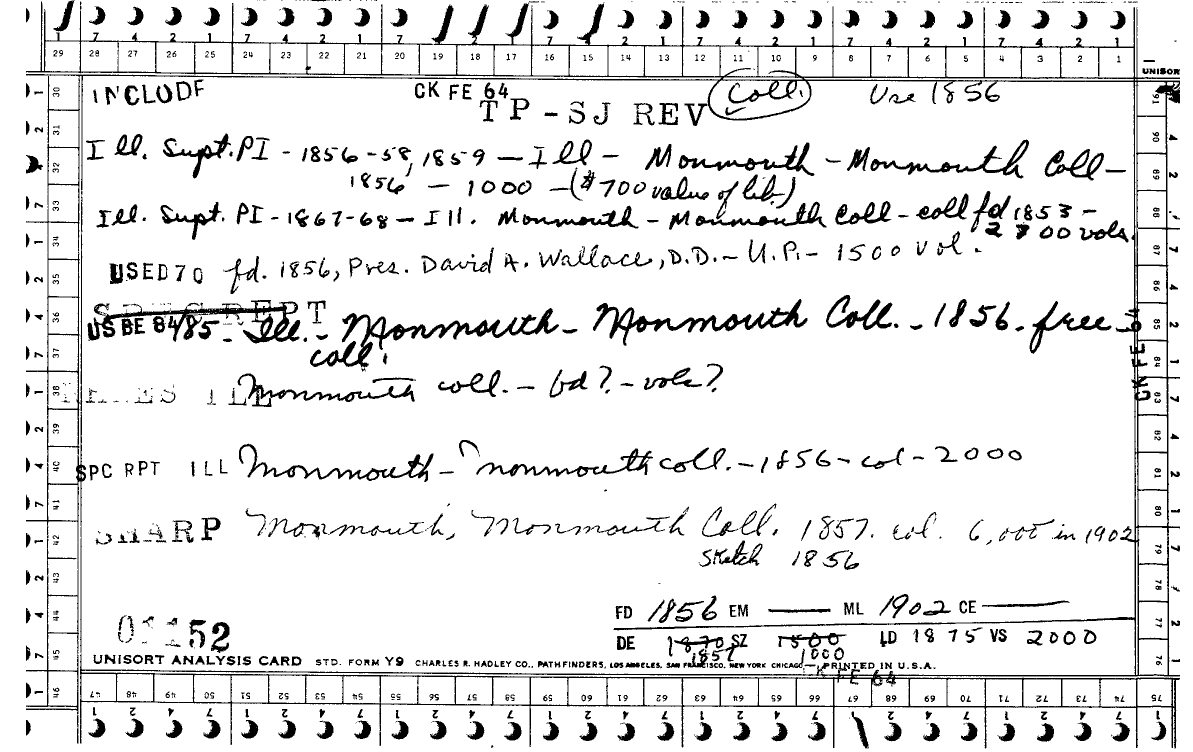 29 28 27 26 25 24 23 22 21 20 19 18 17 16 15 14 13 12 11 10 9 8 7 6 5 4 3 2 1 UNISORT
INCLUDE CK FE 64 Coll. Use 1856
TP-SJ REV
Ill. Supt. PI - 1856-58, 1859 - Ill - Monmouth - Monmouth Coll -
1856 - 1000 - ($700 value of lib.)
Ill. Supt. PI - 1867-68 - Ill. Monmouth - Monmouth Coll - coll fd 1853 -
2700 vols.
USED 70 fd. 1856, Pres. David A. Wallace, D.D. - U.P. - 1500 vol.
SPEC REPT
US BE 84/85 - Ill. - Monmouth - Monmouth Coll. - 1856 - free
coll.
CK FE 64
ILL Monmouth coll. - fd? - vols?
SPC RPT ILL Monmouth - monmouth coll. - 1856 - col - 2000
SHARP Monmouth, Monmouth Coll. 1857. col. 6,000 in 1902
Sketch 1856
FD 1856 EM — ML 1902 CE —
01152
DE 1870 SZ 1500 LD 1875 VS 2000
1857 1000
UNISORT ANALYSIS CARD STD. FORM Y9 CHARLES R. HADLEY CO., PATHFINDERS, LOS ANGELES, SAN FRANCISCO, NEW YORK CHICAGO, PRINTED IN U.S.A.
CK FE 64
47 48 49 50 51 52 53 54 55 56 57 58 59 60 61 62 63 64 65 66 67 68 69 70 71 72 73 74 75